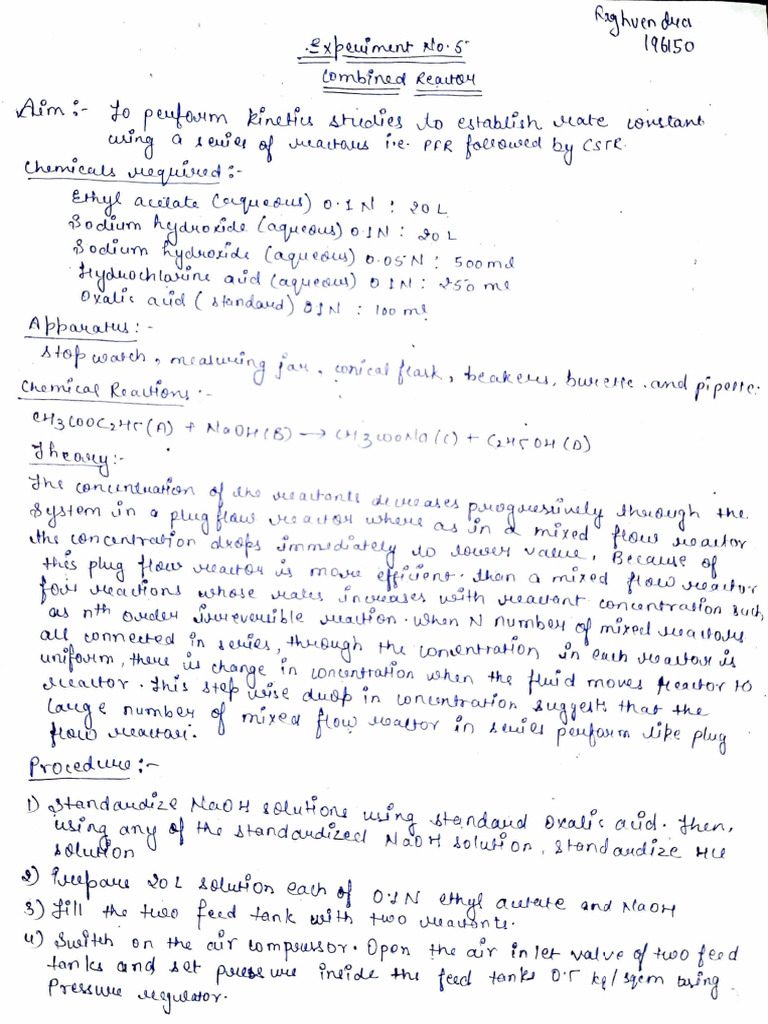 Raghvendra
196150
Experiment No. 5
Combined Reactor
Aim:- To perform kinetics studies to establish rate constant
using a series of reactors i.e. PFR followed by CSTR.
Chemicals required:-
Ethyl acetate (aqueous) 0.1N : 20L
Sodium hydroxide (aqueous) 0.1N : 20L
Sodium hydroxide (aqueous) 0.05N : 500ml
Hydrochlorine acid (aqueous) 0.1N : 250 ml
Oxalic acid (standard) 0.1N : 100 ml
Apparatus:-
Stop watch, measuring jar, conical flask, beakers, burette and pipette.
Chemical Reactions:-
CH3COOC2H5(A) + NaOH(B) → CH3COONa(C) + C2H5OH(D)
Theory:-
The concentration of the reactants decreases progressively through the
system in a plug flow reactor where as in a mixed flow reactor
the concentration drops immediately to lower value. Because of
this plug flow reactor is more efficient than a mixed flow reactor
for reactions whose rates increases with reactant concentration such
as nth order irreversible reaction. When N number of mixed reactors
all connected in series, through the concentration in each reactor is
uniform, there is change in concentration when the fluid moves reactor to
reactor. This step wise drop in concentration suggests that the
large number of mixed flow reactor in series perform like plug
flow reactor.
Procedure:-
1) Standardize NaOH solutions using standard oxalic acid. Then,
using any of the standardized NaOH solution, standardize HCl
solution
2) Prepare 20L solution each of 0.1N ethyl acetate and NaOH
3) Fill the two feed tank with two reactants.
4) Switch on the air compressor. Open the air inlet valve of two feed
tanks and set pressure inside the feed tanks 0.5 kg/sqcm using
Pressure regulator.